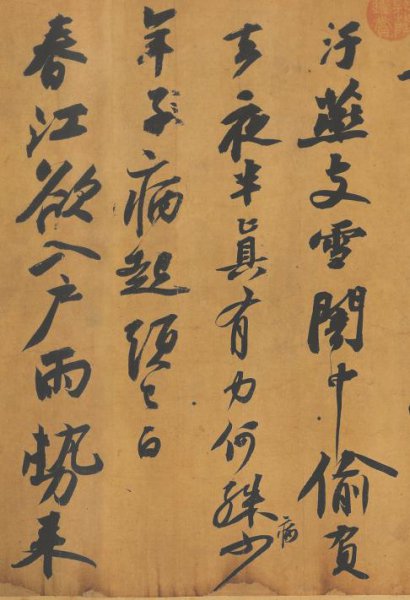 汙燕支雪闇中偷負
去夜半真有力何殊病少
年子病起頭已白
春江欲入戶雨勢來